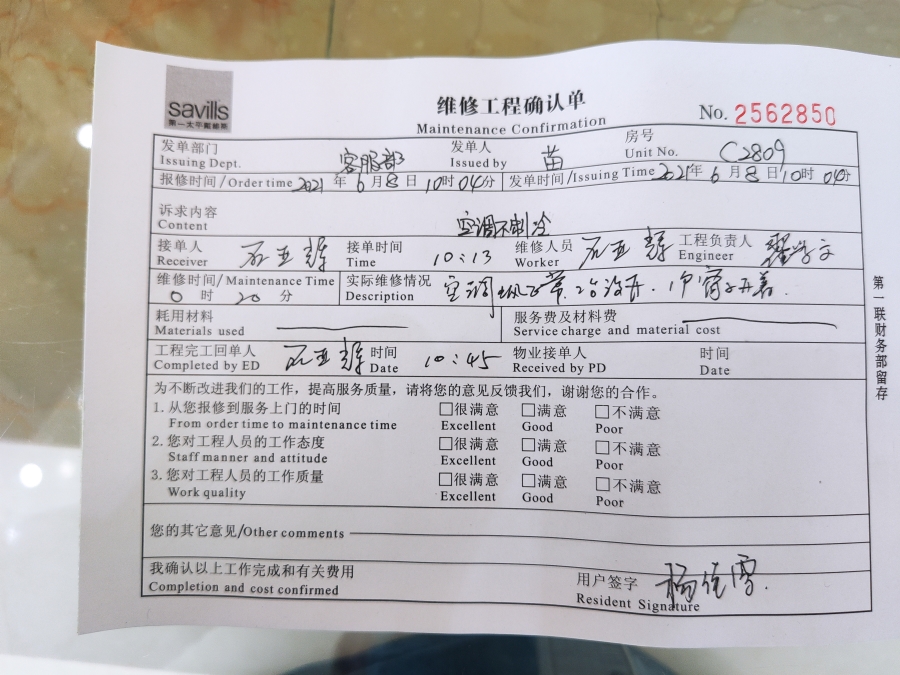 savills
第一太平戴维斯
维修工程确认单
Maintenance Confirmation
No. 2562850
发单部门 客服部 发单人 苗 房号 C2809
Issuing Dept. Issued by Unit No.
报修时间/Order time 2021 年 6 月 8 日 10 时 04 分 发单时间/Issuing Time 2021 年 6 月 8 日 10 时 04 分
诉求内容 空调不制冷
Content
接单人 石亚辉 接单时间 10:13 维修人员 石亚辉 工程负责人
Receiver Time Worker Engineer
维修时间/Maintenance Time 实际维修情况 空调
0 时 20 分 Description
耗用材料 服务费及材料费
Materials used Service charge and material cost
工程完工回单人 石亚辉 时间 10:45 物业接单人 时间
Completed by ED Date Received by PD Date
为不断改进我们的工作，提高服务质量，请将您的意见反馈我们，谢谢您的合作。
1. 从您报修到服务上门的时间 □很满意 □满意 □不满意
From order time to maintenance time Excellent Good Poor
2. 您对工程人员的工作态度 □很满意 □满意 □不满意
Staff manner and attitude Excellent Good Poor
3. 您对工程人员的工作质量 □很满意 □满意 □不满意
Work quality Excellent Good Poor
您的其它意见/Other comments
我确认以上工作完成和有关费用 用户签字 杨佳雪.
Completion and cost confirmed Resident Signature
第一联财务部留存